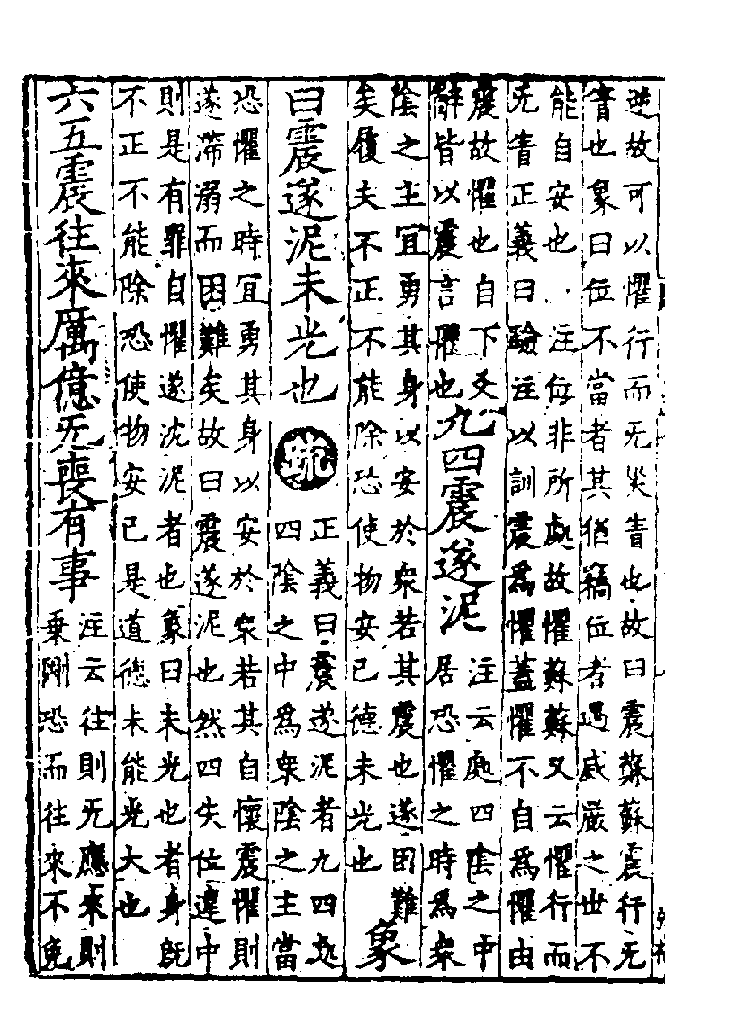 逆故可以懼行而无災眚也故曰震蘇蘇震行无
眚也象曰位不當者其猶竊位者遇威嚴之世不
能自安也注位非所處故懼蘇蘇又云懼行而
无眚正義曰驗注以訓震為懼蓋懼不自為懼由
震故懼也自下爻
辭皆以震言懼也
九四震遂泥
注云處四陰之中
居恐懼之時為衆
陰之主宜勇其身以安於衆若其震也遂困難
矣履夫不正不能除恐使物安已德未光也
象
曰震遂泥未光也
疏
正義曰震遂泥者九四處
四陰之中為衆陰之主當
恐懼之時宜勇其身以安於衆若其自懷震懼則
遂滯溺而困難矣故曰震遂泥也然四失位違中
則是有罪自懼遂沈泥者也象曰未光也者身既
不正不能除恐使物安已是道德未能光大也
六五震往來厲億无喪有事
注云往則无應來則
乘剛恐而往來不免